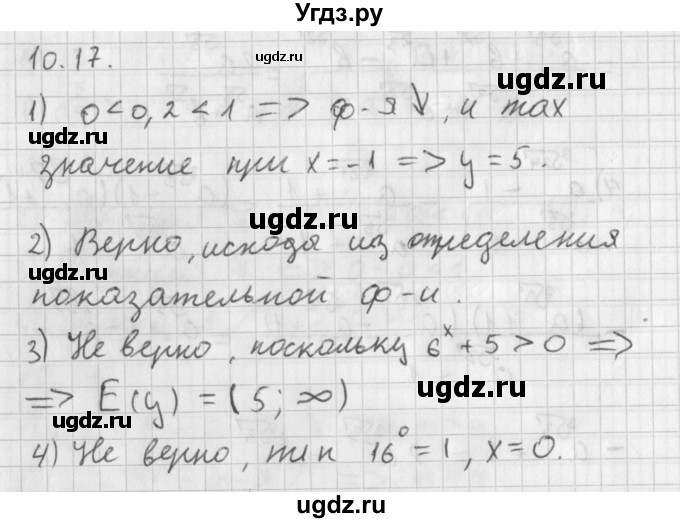 Угдз.ру
10.17.
1) 0<0,2<1 => ф-я↓, и max
значение при x=-1 => y=5.
2) Верно, исходя из определения
показательной ф-и.
3) Не верно, поскольку 6ˣ+5>0 =>
=> E(y) = (5; ∞)
4) Не верно, т.к 16⁰=1, x=0.
ugdz.ru
ugdz.ru
ugdz.ru
ugdz.ru
ugdz.ru
ugdz.ru
ugdz.ru
ugdz.ru
ugdz.ru
ugdz.ru
ugdz.ru
ugdz.ru